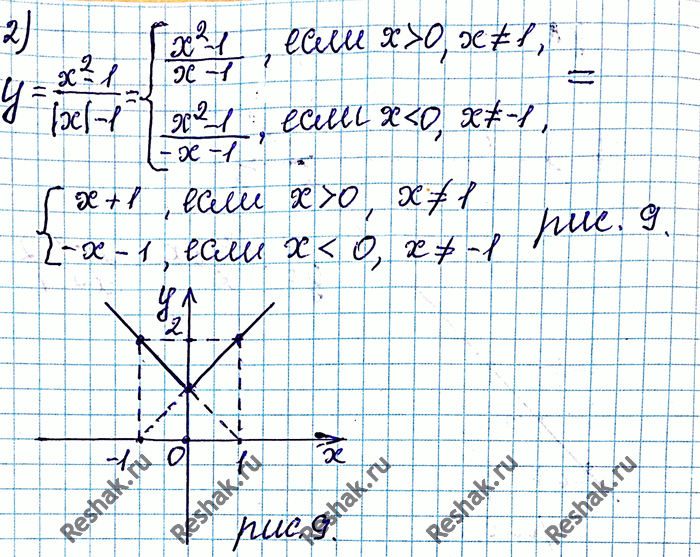 2)
y = \frac{x²-1}{|x|-1} = { \frac{x²-1}{x-1}, если x>0, x≠1,
\frac{x²-1}{-x-1}, если x<0, x≠-1, =
{ x+1, если x>0, x≠1
-x-1, если x<0, x≠-1 рис. 9.
y
2
-1 0 1 x
Reshak.ru Reshak.ru Reshak.ru Reshak.ru Reshak.ru
рис. 9.